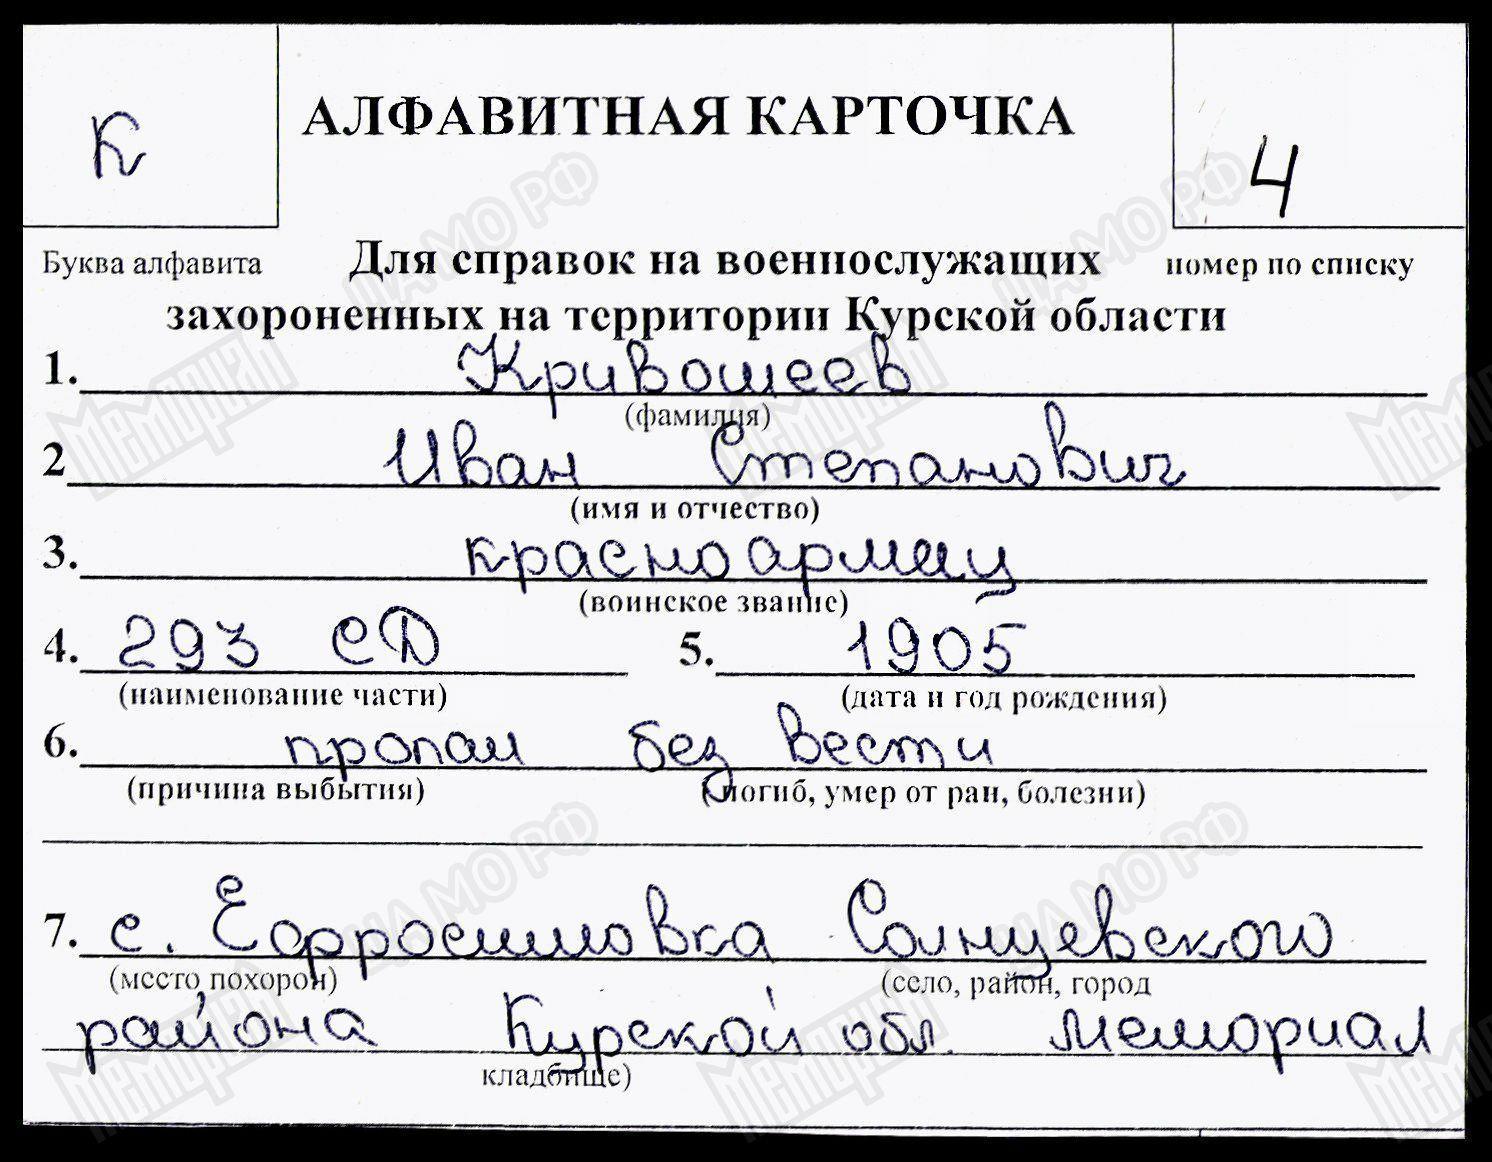 К
АЛФАВИТНАЯ КАРТОЧКА
4
Буква алфавита
Для справок на военнослужащих
номер по списку
захороненных на территории Курской области
1. Кривошеев
(фамилия)
2 Иван Степанович
(имя и отчество)
3. красноармец
(воинское звание)
4. 293 СД 5. 1905
(наименование части) (дата и год рождения)
6. пропал без вести
(причина выбытия) (погиб, умер от ран, болезни)
7. с. Ефросимовка Солнцевского
(место похорон) (село, район, город
района Курской обл. мемориал
кладбище)
ЦАМО РФ
Мемориал